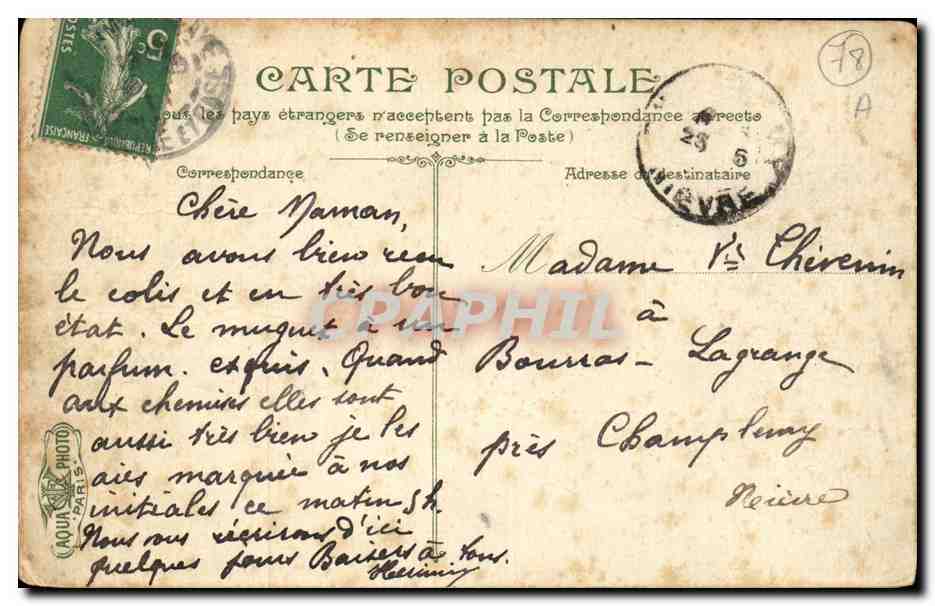 5 c
POSTES
REPUBLIQUE FRANCAISE
78
A
CARTE POSTALE
Tous les pays étrangers n'acceptent pas la Correspondance au recto
(Se renseigner à la Poste)
Correspondance
Adresse du destinataire
25 5
NIEVRE
Chère Maman,
Nous avons bien reçu
le colis et en très bon
état. Le muguet à un
parfum exquis. Quand
aux chemises elles sont
aussi très bien je les
aies marquée à nos
initiales ce matin 5h.
Nous vous réécrirons d'ici
quelques jours Baisers à tous.
Madame Vve Thévenin
à
Bourras-Lagrange
près Champlemy
Nièvre
AQUA PHOTO
PARIS
CPAPHIL